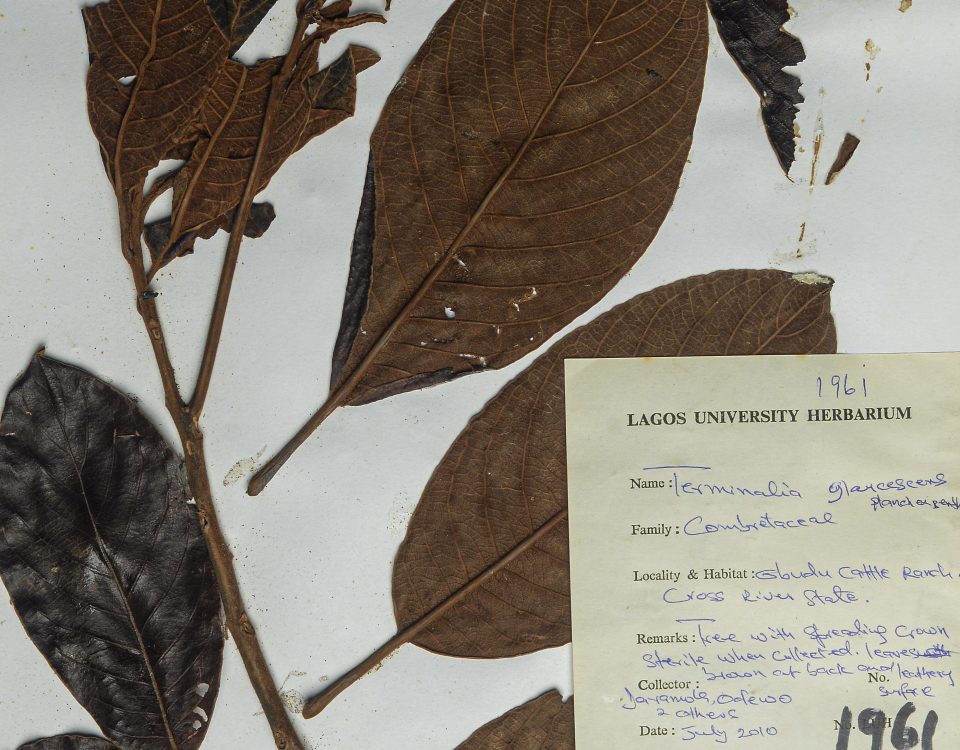 1961
LAGOS UNIVERSITY HERBARIUM
Name: Terminalia glaucescens
Family: Combretaceae
Locality & Habitat: Obudu Cattle Ranch.
Cross River State.
Remarks: Tree with spreading Crown
sterile when collected. leaves
brown at back and leathery
Collector: No.
surface
Jayamola, Odewo
2 others
Date: July 2010
1961